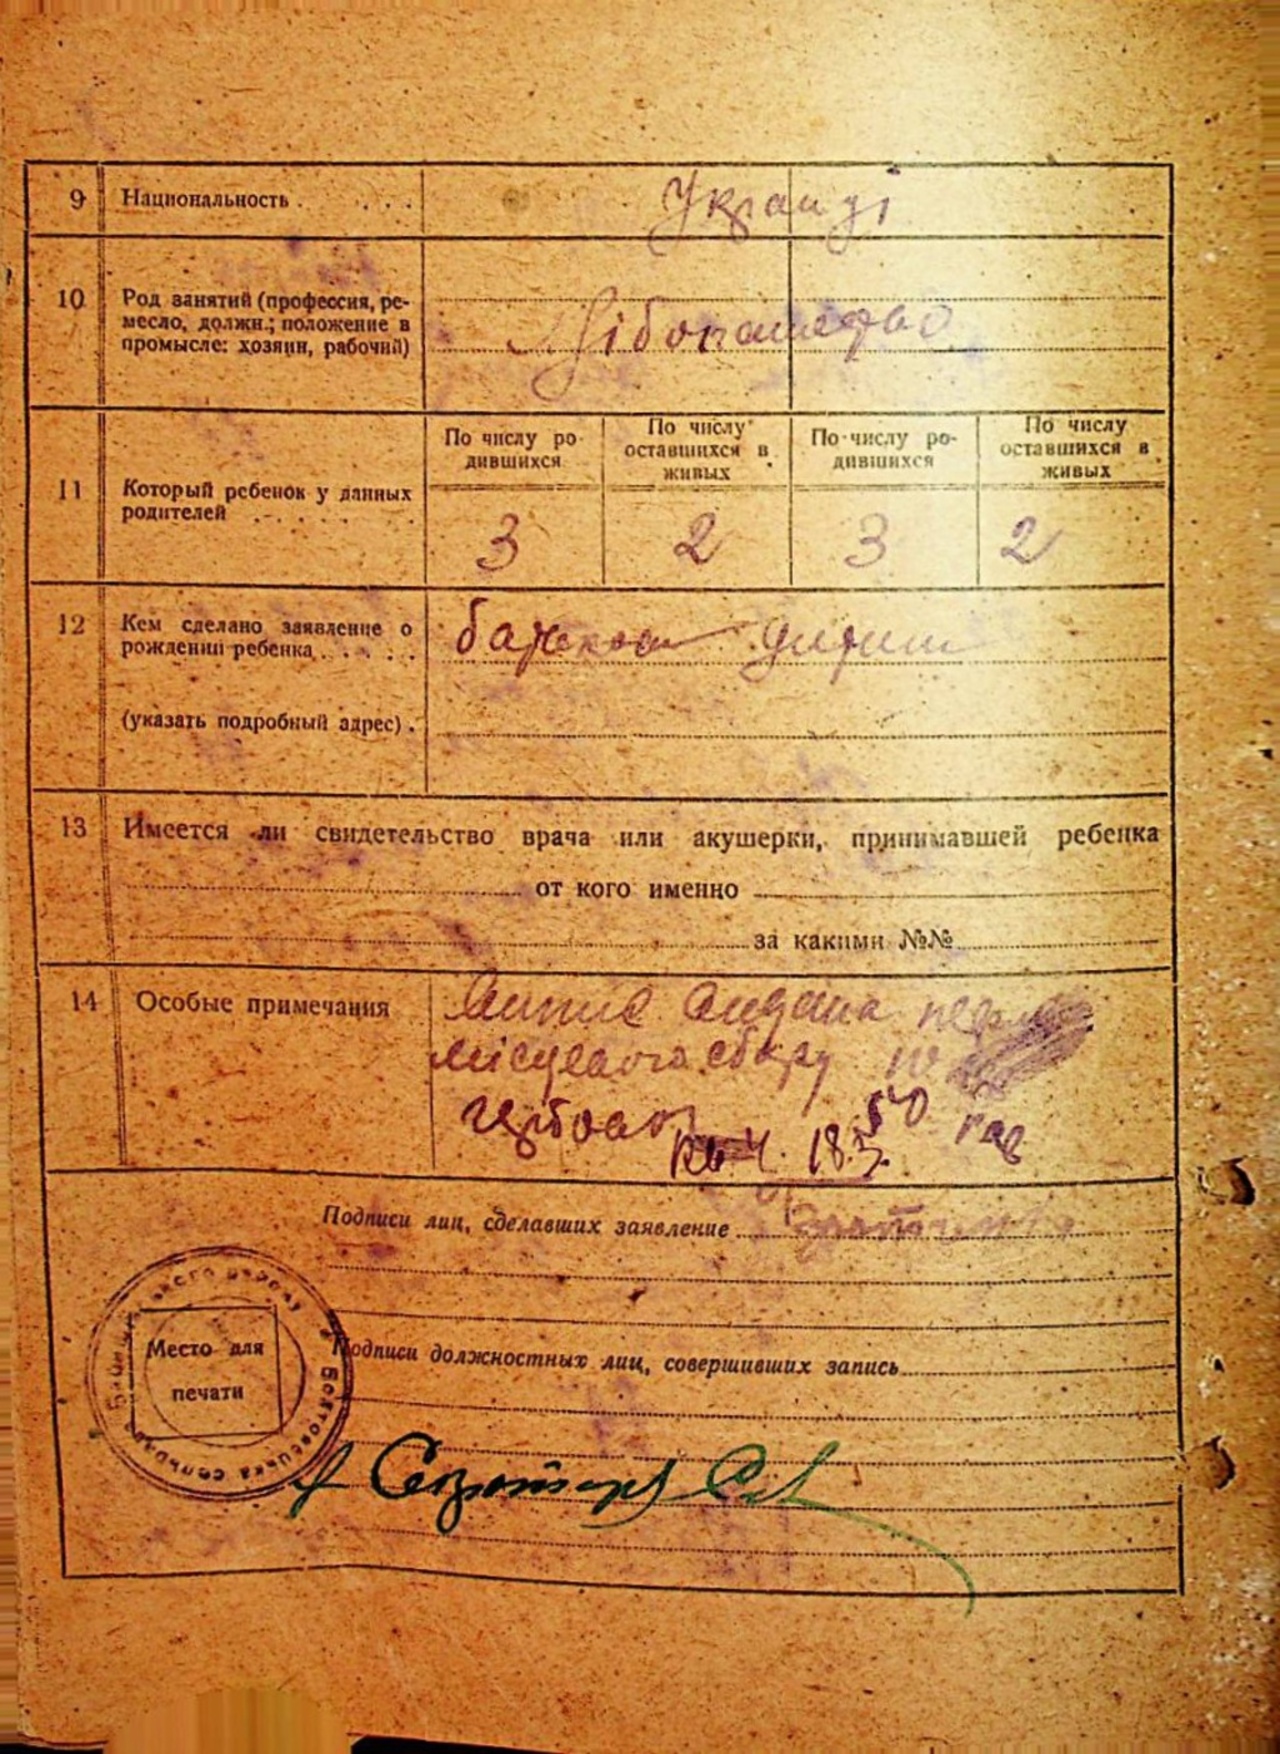 9 Национальность . . . . Українці
10 Род занятий (профессия, ре-
месло, должн.; положение в
промысле: хозяин, рабочий)
Хлібопашество
По числу ро-
дившихся
По числу
оставшихся в
живых
По числу ро-
дившихся
По числу
оставшихся в
живых
11 Который ребенок у данных
родителей . . . . . .
3 2 3 2
12 Кем сделано заявление о
рождении ребенка . . . . .
батьком дитини
(указать подробный адрес) .
13 Имеется ли свидетельство врача или акушерки, принимавшей ребенка
от кого именно
за какими №№
14 Особые примечания
місцевого збору 10
гербового 50
кв Ч. 18.3.
Подписи лиц, сделавших заявление
Место для
печати
Подписи должностных лиц, совершивших запись
Секретарь